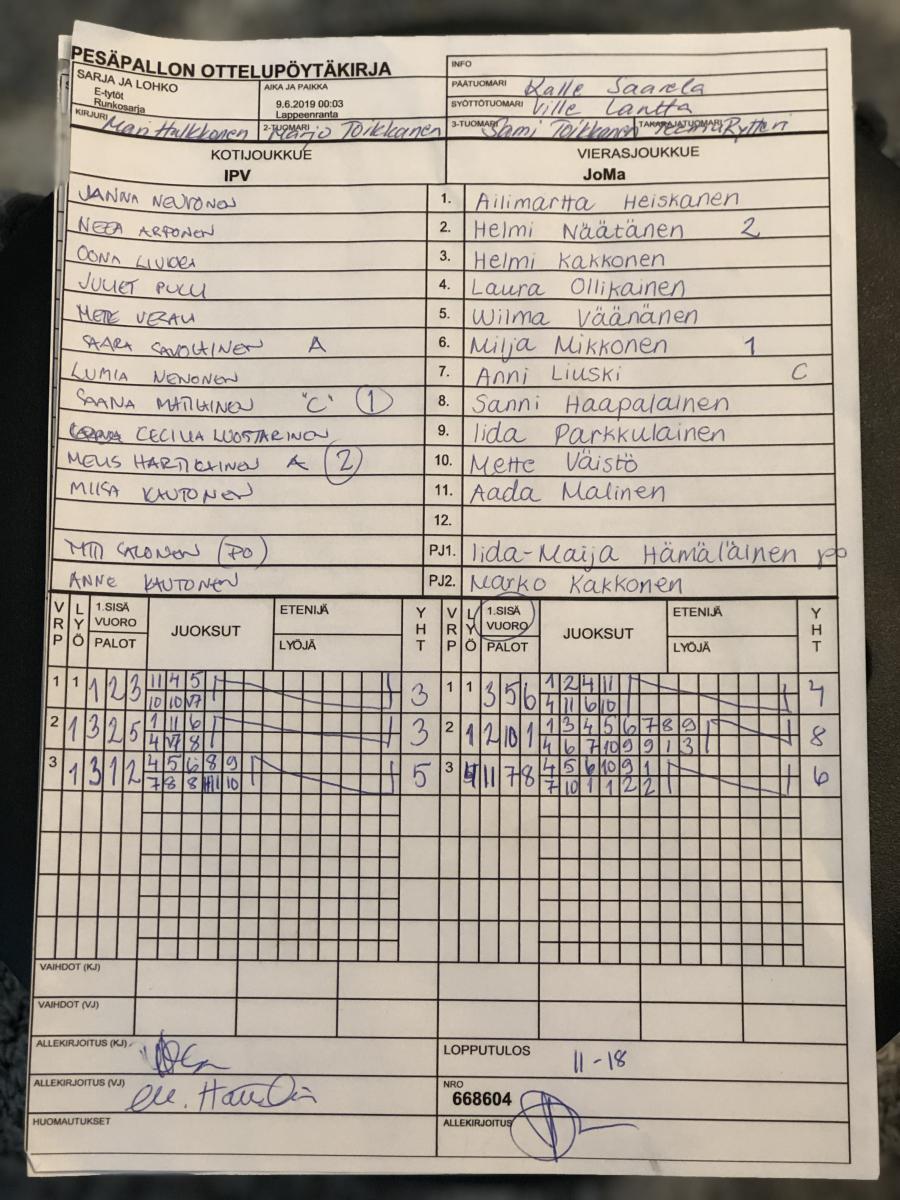 PESÄPALLON OTTELUPÖYTÄKIRJA
INFO
SARJA JA LOHKO
E-tytöt
Runkosarja
AIKA JA PAIKKA
9.6.2019 00:03
Lappeenranta
PÄÄTUOMARI Kalle Saarela
SYÖTTÖTUOMARI Ville Lantta
KIRJURI Mari Hulkkonen 2-TUOMARI Marjo Toikkanen 3-TUOMARI Sami Toikkanen TAKARAJATUOMARI Teemu Rytteri
KOTIJOUKKUE VIERASJOUKKUE
IPV JoMa
JANNA NEUVONEN 1. Ailimartta Heiskanen
NEEA ARPONEN 2. Helmi Näätänen 2
OONA LIUKKA 3. Helmi Kakkonen
JULIET PULLI 4. Laura Ollikainen
METE 5. Wilma Väänänen
SAARA SAVOLAINEN A 6. Milja Mikkonen 1
LUMIA NENONEN 7. Anni Liuski C
SAANA MATILAINEN "C" 1 8. Sanni Haapalainen
CECILIA LUOSTARINEN 9. Iida Parkkulainen
MELIS HARTIKAINEN A 2 10. Mette Väistö
MIISA KAUTONEN 11. Aada Malinen
12.
SALONEN (PO) PJ1. Iida-Maija Hämäläinen po
ANNE KAUTONEN PJ2. Marko Kakkonen
VRP LYÖ 1.SISÄ VUORO PALOT JUOKSUT ETENIJÄ LYÖJÄ YHT VRP LYÖ 1.SISÄ VUORO PALOT JUOKSUT ETENIJÄ LYÖJÄ YHT
1 1 1 2 3 11 4 5 3 1 1 3 5 6 1 2 4 11 4
10 10 V7 4 11 6 10
2 1 3 2 5 1 11 6 3 2 1 2 10 1 1 3 4 5 6 7 8 9 8
4 V7 8 4 6 7 10 9 9 1 3
3 1 3 1 2 4 5 6 8 9 5 3 11 7 8 4 5 6 10 9 1 6
7 8 8 10 7 10 1 1 2 2
VAIHDOT (KJ)
VAIHDOT (VJ)
ALLEKIRJOITUS (KJ) LOPPUTULOS 11-18
ALLEKIRJOITUS (VJ) NRO
668604
HUOMAUTUKSET ALLEKIRJOITUS